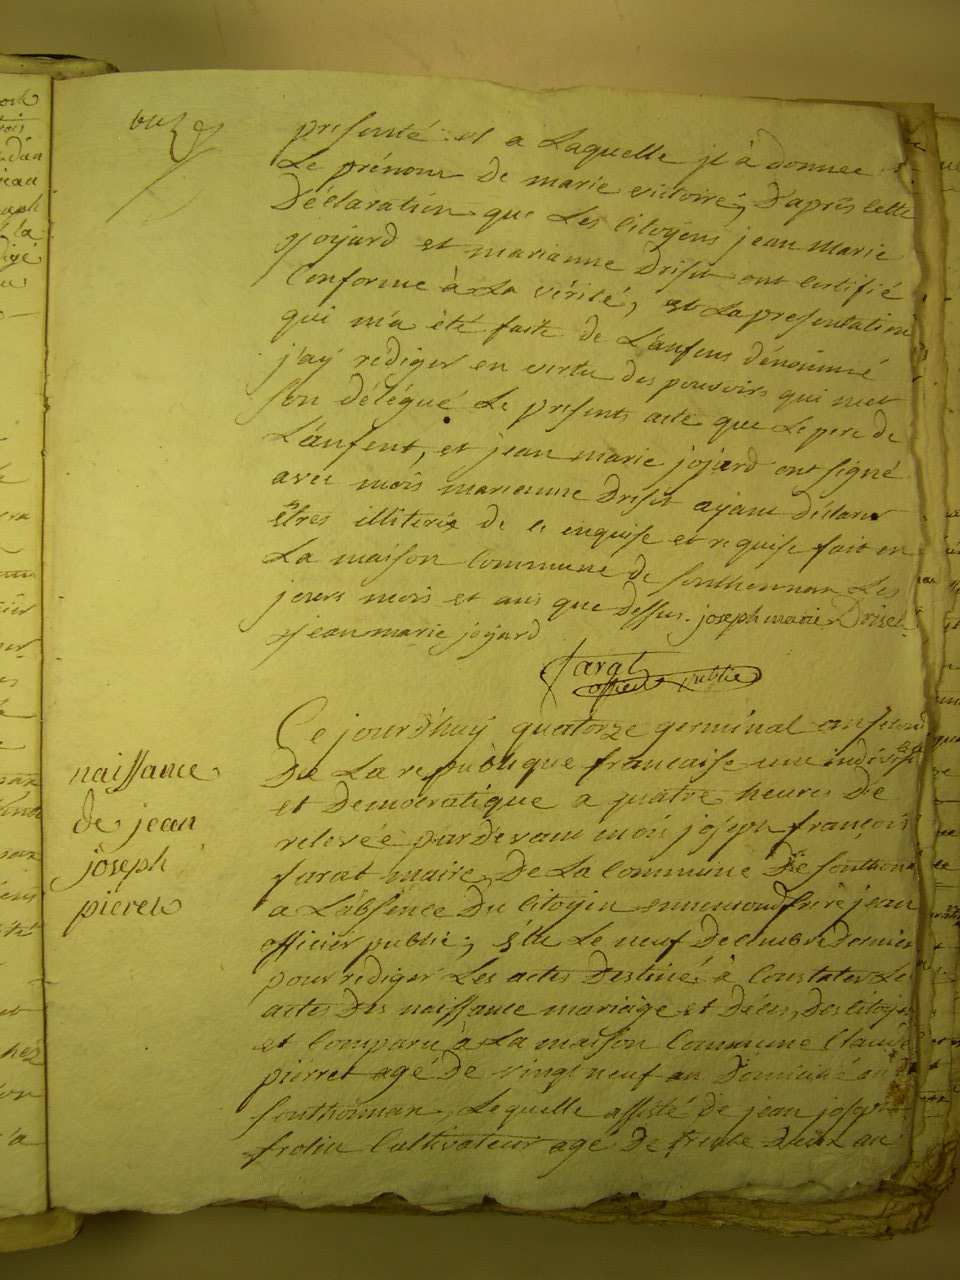 presenté et a Laquelle jl à donnee
Le prénom De marie victoire, D'après cette
Déclaration que Les Citoyens jean Marie
jojard et marianne Drisit ont Certifié
Conforme à La vérité, et La presentation
qui m'a été faite de L'anfens dénommé
j'ay rédiger en vertu des pouvoirs qui
son délégué Le present acte que Le pere de
L'anfent, et jean marie jojard ont signé
avec mois marianne Drisit ayant déclaré
êtres illiteré de ce enquise et requise fait en
La maison Commune de fonthonnan Les
jours mois et ans que Dessus. joseph marie Driset
jean marie jojard
farat
officier publie
naissance
de jean
joseph
pieret
Ce jourd'huy quatorze germinal an second
De La republique francaise une indivisible
et Democratique a quatre heures De
relevée pardevant mois joseph françois
farat maire De La Commune De fonthonn
a L'absence Du Citoyen frere jean
officier publie, élu Le neuf Decembre dernier
pour rediger Les actes Destiné à Constater Le
actes Des naissance mariage et Déces Des Citoyen
et Comparu à La maison Commune Claude
pierret agé De vingt neuf an Domicilié au
fonthonnan, Lequelle assisté de jean joseph
frolin Cultivateur agé De trente Deux an